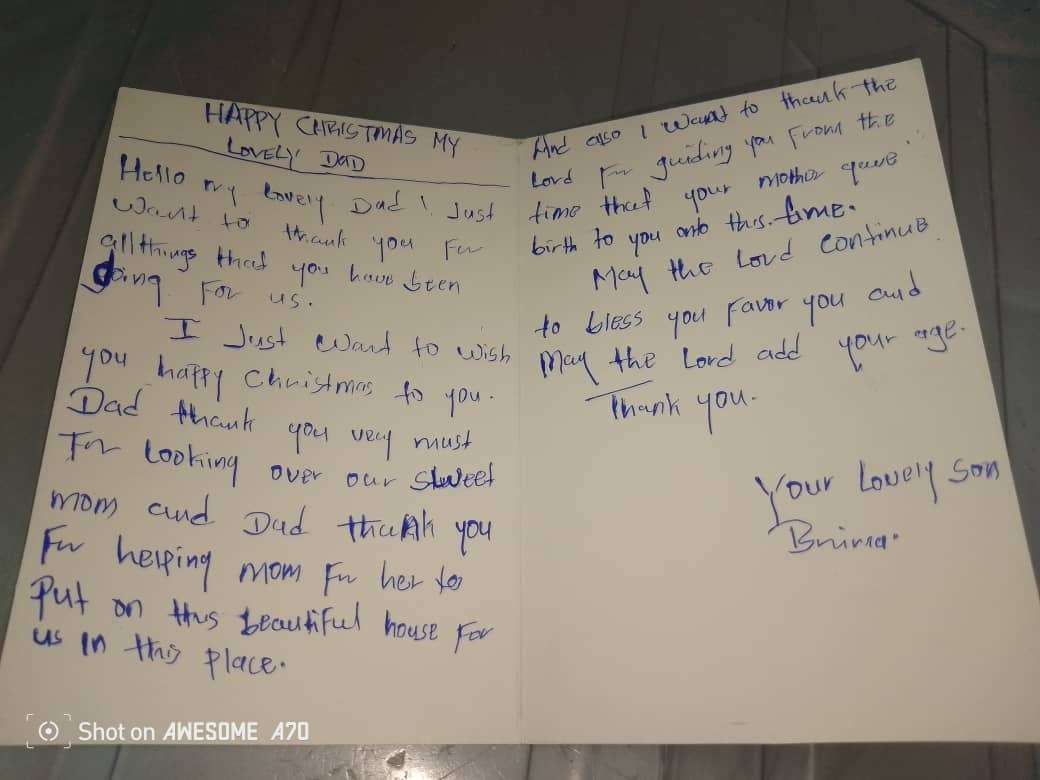 HAPPY CHRISTMAS MY
LOVELY DAD
Hello my lovely Dad I Just
want to thank you for
all things that you have been
doing For us.
I Just want to wish
you happy Christmas to you.
Dad thank you very must
For Looking over our sweet
mom and Dad thank you
For helping mom For her to
Put on this beautiful house For
us in this place.
And also I want to thank the
Lord For guiding you From the
time that your mother gave
birth to you onto this time.
May the Lord continue
to bless you Favor you and
May the Lord add your age.
Thank you.
Your Lovely Son
Shot on AWESOME A70